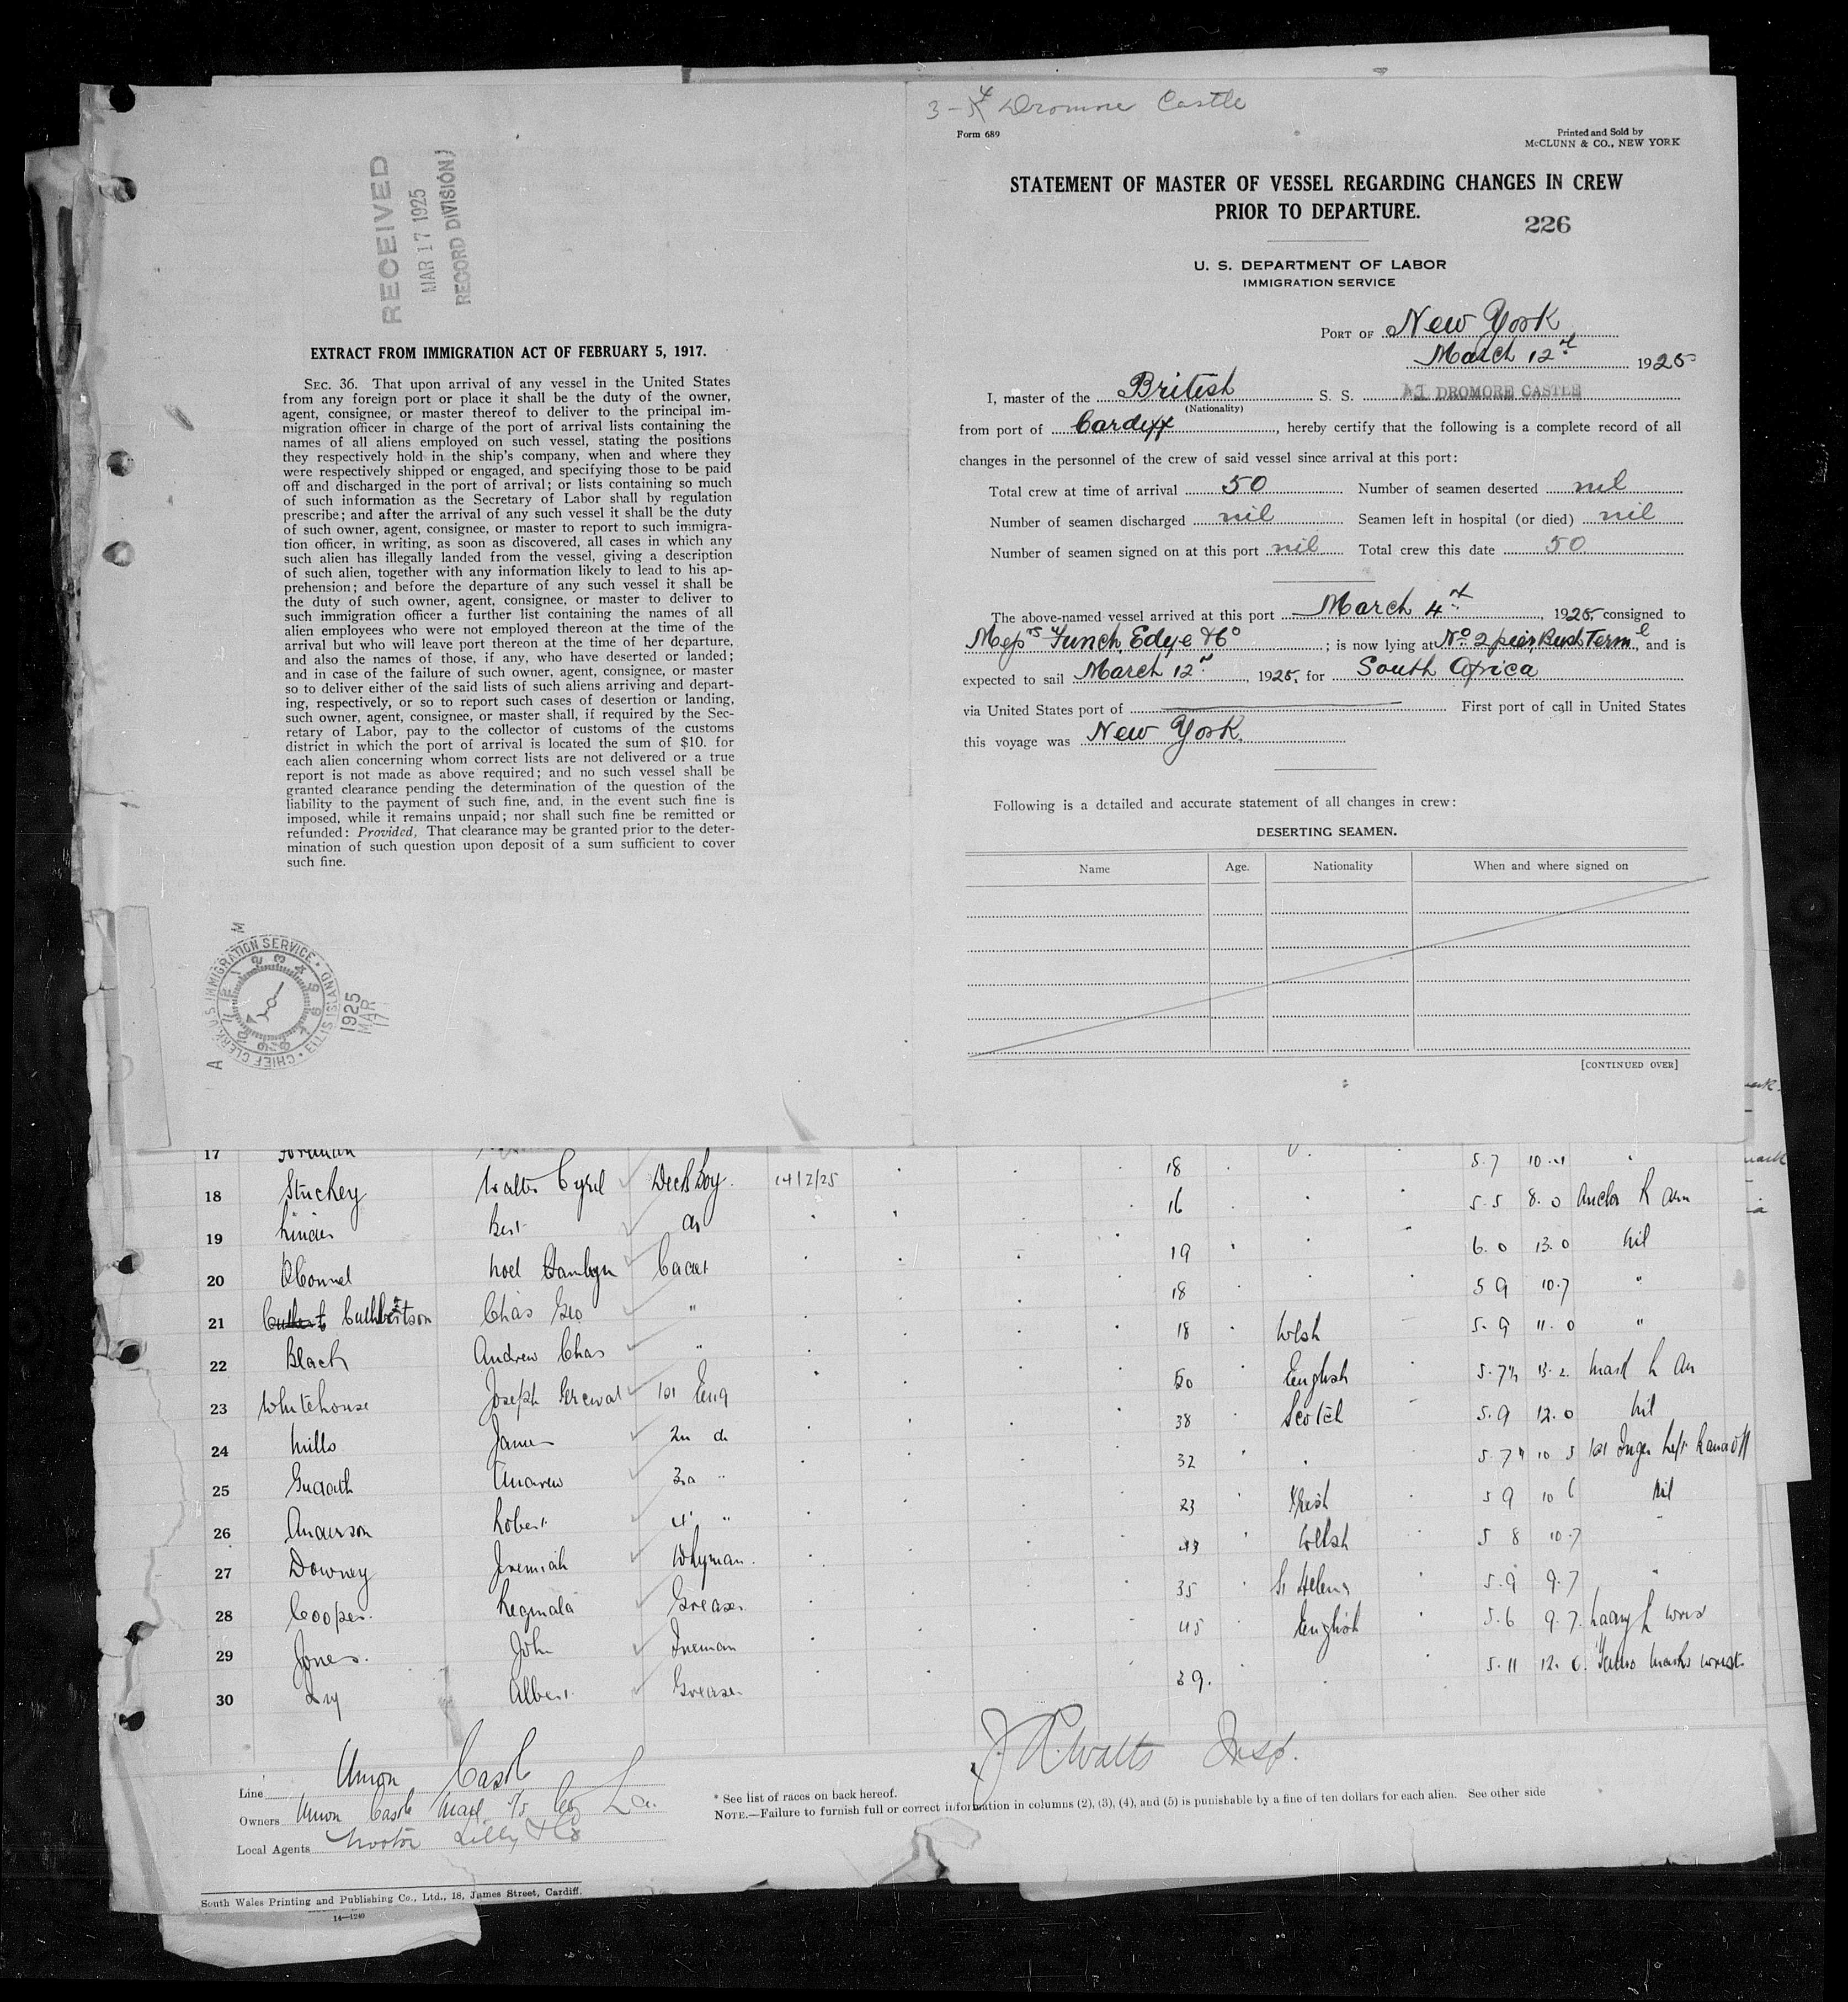 RECEIVED
MAR 17 1925
RECORD DIVISION
EXTRACT FROM IMMIGRATION ACT OF FEBRUARY 5, 1917.
SEC. 36. That upon arrival of any vessel in the United States
from any foreign port or place it shall be the duty of the owner,
agent, consignee, or master thereof to deliver to the principal im-
migration officer in charge of the port of arrival lists containing the
names of all aliens employed on such vessel, stating the positions
they respectively hold in the ship's company, when and where they
were respectively shipped or engaged, and specifying those to be paid
off and discharged in the port of arrival; or lists containing so much
of such information as the Secretary of Labor shall by regulation
prescribe; and after the arrival of any such vessel it shall be the duty
of such owner, agent, consignee, or master to report to such immigra-
tion officer, in writing, as soon as discovered, all cases in which any
such alien has illegally landed from the vessel, giving a description
of such alien, together with any information likely to lead to his ap-
prehension; and before the departure of any such vessel it shall be
the duty of such owner, agent, consignee, or master to deliver to
such immigration officer a further list containing the names of all
alien employees who were not employed thereon at the time of the
arrival but who will leave port thereon at the time of her departure,
and also the names of those, if any, who have deserted or landed;
and in case of the failure of such owner, agent, consignee, or master
so to deliver either of the said lists of such aliens arriving and depart-
ing, respectively, or so to report such cases of desertion or landing,
such owner, agent, consignee, or master shall, if required by the Sec-
retary of Labor, pay to the collector of customs of the customs
district in which the port of arrival is located the sum of $10. for
each alien concerning whom correct lists are not delivered or a true
report is not made as above required; and no such vessel shall be
granted clearance pending the determination of the question of the
liability to the payment of such fine, and, in the event such fine is
imposed, while it remains unpaid; nor shall such fine be remitted or
refunded: Provided, That clearance may be granted prior to the deter-
mination of such question upon deposit of a sum sufficient to cover
such fine.
CHIEF CLERK U.S. IMMIGRATION SERVICE ELLIS ISLAND
1925
MAR
17
Dromore Castle
Form 689
Printed and Sold by
McCLUNN & CO., NEW YORK
STATEMENT OF MASTER OF VESSEL REGARDING CHANGES IN CREW
PRIOR TO DEPARTURE.
226
U. S. DEPARTMENT OF LABOR
IMMIGRATION SERVICE
PORT OF New York
March 12th 1925
I, master of the British S. S. DROMORE CASTLE
(Nationality)
from port of Cardiff, hereby certify that the following is a complete record of all
changes in the personnel of the crew of said vessel since arrival at this port:
Total crew at time of arrival 50 Number of seamen deserted nil
Number of seamen discharged nil Seamen left in hospital (or died) nil
Number of seamen signed on at this port nil Total crew this date 50
The above-named vessel arrived at this port March 4th, 1925, consigned to
Messrs Funch, Edye & Co; is now lying at No 2 pier, Bush Terml, and is
expected to sail March 12th, 1925, for South Africa
via United States port of First port of call in United States
this voyage was New York.
Following is a detailed and accurate statement of all changes in crew:
DESERTING SEAMEN.
Name Age. Nationality When and where signed on
[CONTINUED OVER]
17 18 5.7
18 Stuckey Walter Cyril Deck Boy. 14/2/25 16 5.5 8.0 Anchor R arm
19 Bert do 19 6.0 13.0 Nil
20 OConnel Noel Cadet 18 5 9 10.7 "
21 Cuthbertson Chas Geo " 18 Welsh 5.9 11.0 "
22 Black Andrew Chas " 50 English
23 Whitehouse Joseph 1st Eng 38 Scotch 5.9 12.0 Nil
24 Mills James 2nd do 32
25 Andrew 3rd " 23 Irish 5 9 Nil
26 Anderson Robert 4th " Welsh 5 8 10.7
27 Downey Jeremiah 35 St Helena 5.9 9.7
28 Cooper Reginald Greaser 45 English 5.6 9.7
29 Jones John Fireman 39. 5.11 12.0 Tattoo marks wrist
30 Albert Greaser
Line Union Castle
Owners Union Castle Mail S/S Co Ld.
Local Agents Norton Lilly & Co
J. R. Watts Insp.
* See list of races on back hereof.
NOTE.—Failure to furnish full or correct information in columns (2), (3), (4), and (5) is punishable by a fine of ten dollars for each alien. See other side
South Wales Printing and Publishing Co., Ltd., 18, James Street, Cardiff.
14—1240